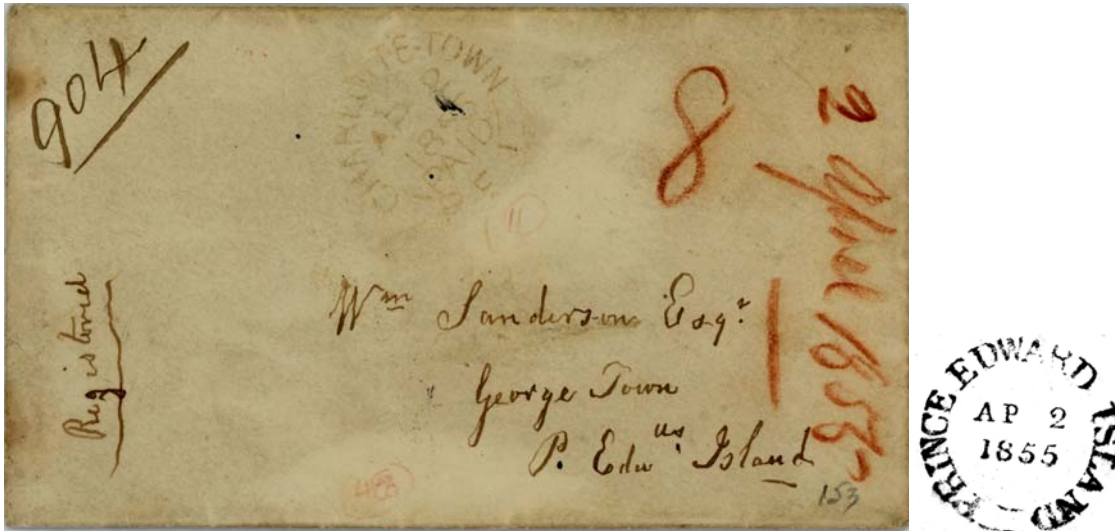 904
Registered
CHARLOTTE-TOWN
PAID
8
2 April 1855
11
Wm Sanderson Esqr.
George Town
P. Edwds Island
153
PRINCE EDWARD ISLAND
AP 2
1855